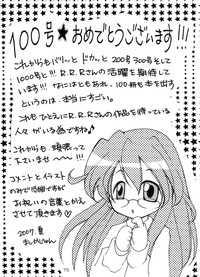 100号★おめでとうございます!!!
これからもバリーッと ドカーッと 200号 300号 そして
1000号と!!! R.R.Rさんの活躍を期待して
います!!! なにはともあれ、100冊も本を出す
というのは、本当にすごい。
これも ひとえに R.R.Rさんの作品を待っている
人々がいる為ですね♪
これからも、頑張って
下さいませ ~~
コメントとイラスト
のみで恐縮ですが
お祝いの言葉とかえ
させて頂きます♡
2007. 夏